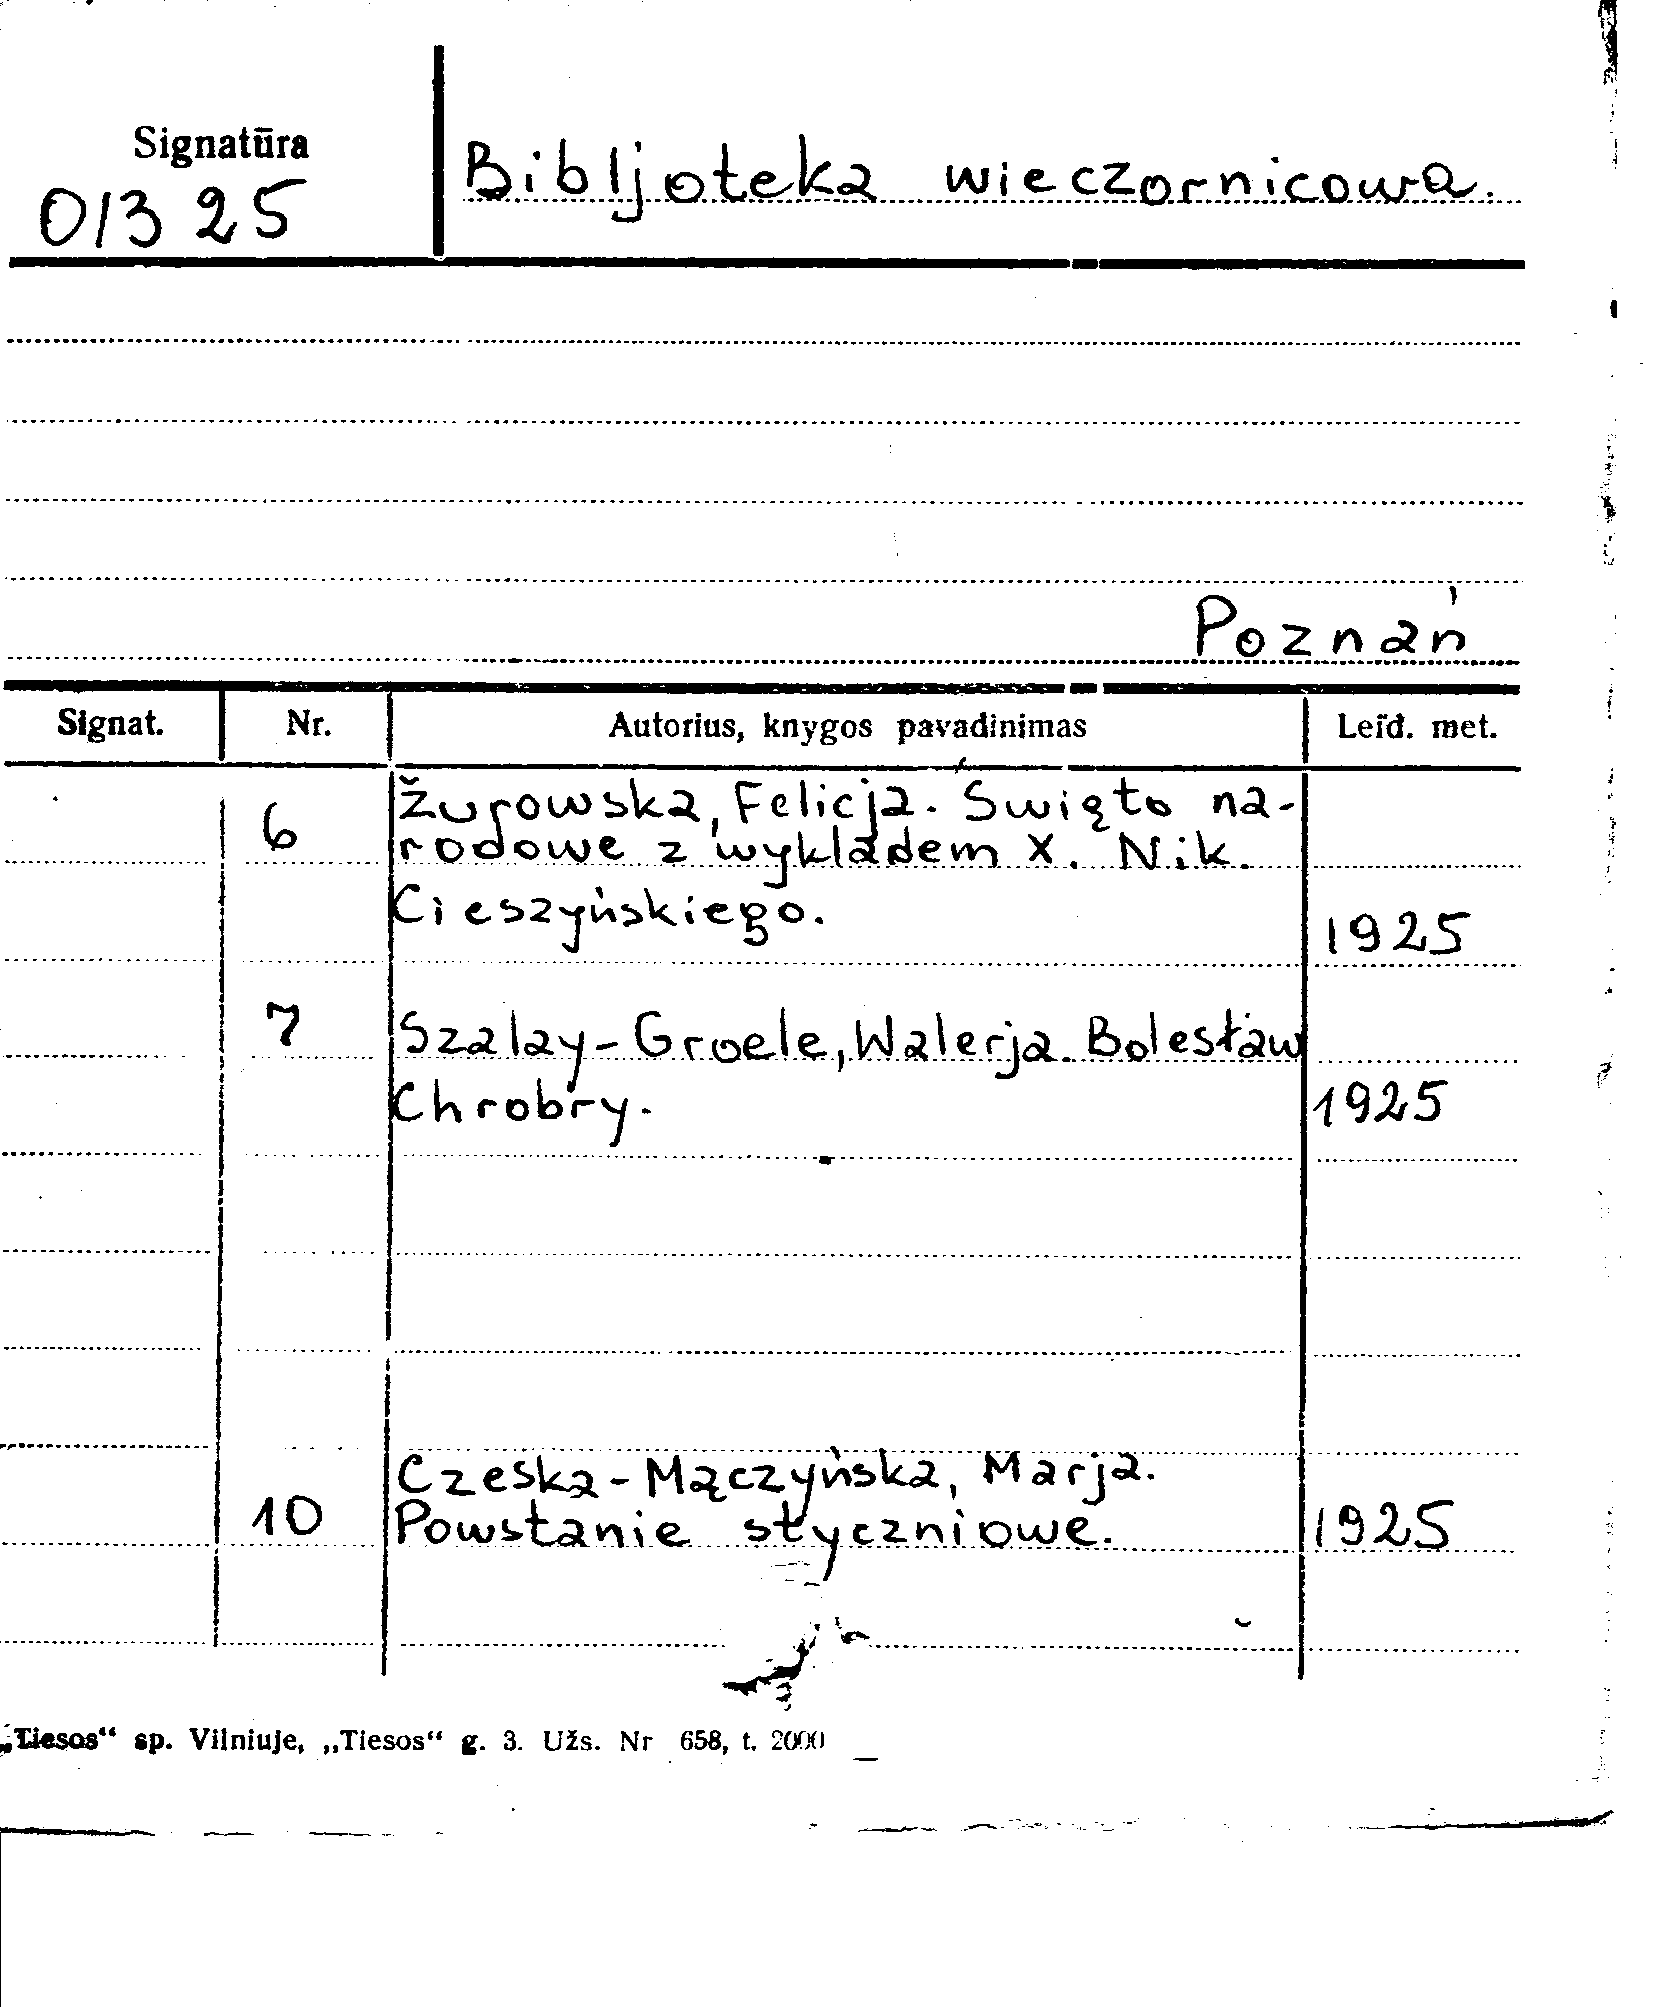 Signatūra
01325
Bibljoteka wieczornicowa.
Poznań
Signat. Nr. Autorius, knygos pavadinimas Leid. met.
6 Żurowska, Felicja. Święto na-
rodowe z wykladem X. Nik.
Cieszyńskiego. 1925
7 Szalay-Groele, Walerja. Bolesław
Chrobry. 1925
Czeska-Mączyńska, Marja.
10 Powstanie styczniowe. 1925
„Tiesos“ sp. Vilniuje, „Tiesos“ g. 3. Užs. Nr 658, t. 2000